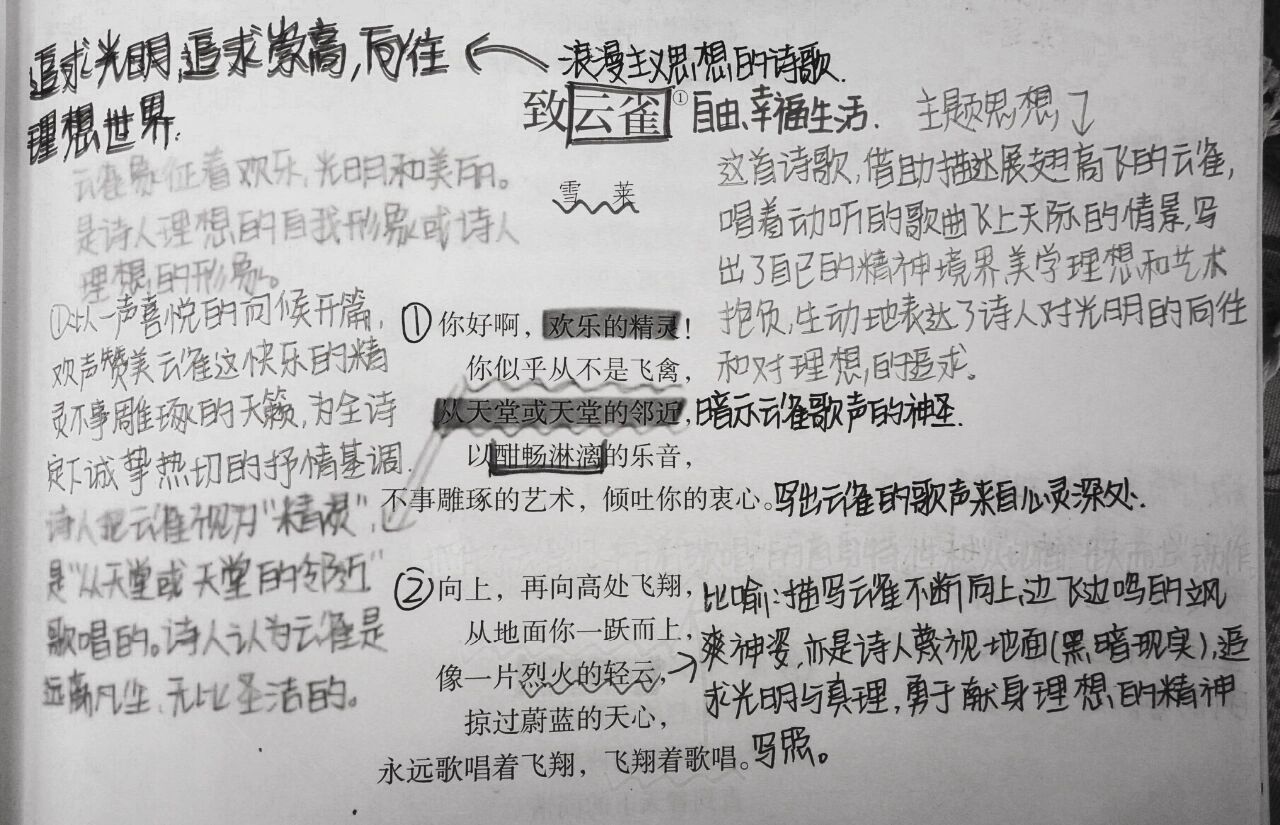 追求光明,追求崇高,向往
理想世界.
浪漫主义思想的诗歌.
致云雀①
自由、幸福生活.
主题思想
雪 莱
云雀象征着欢乐、光明和美丽。
是诗人理想的自我形象或诗人
理想的形象。
这首诗歌,借助描述展翅高飞的云雀,
唱着动听的歌曲飞上天际的情景,写
出了自己的精神境界、美学理想和艺术
抱负,生动地表达了诗人对光明的向往
和对理想的追求。
①以一声喜悦的问候开篇,
欢声赞美云雀这快乐的精
灵不事雕琢的天籁,为全诗
定下诚挚热切的抒情基调.
诗人把云雀视为“精灵”,
是“从天堂或天堂的邻近”
歌唱的。诗人认为云雀是
远离凡尘、无比圣洁的。
①你好啊,欢乐的精灵!
你似乎从不是飞禽,
从天堂或天堂的邻近,
暗示云雀歌声的神圣.
以酣畅淋漓的乐音,
不事雕琢的艺术,倾吐你的衷心。
写出云雀的歌声来自心灵深处.
②向上,再向高处飞翔,
从地面你一跃而上,
像一片烈火的轻云,
掠过蔚蓝的天心,
永远歌唱着飞翔,飞翔着歌唱。
比喻:描写云雀不断向上,边飞边鸣的飒
爽神姿,亦是诗人蔑视地面(黑暗现实),追
求光明与真理,勇于献身理想的精神
写照。